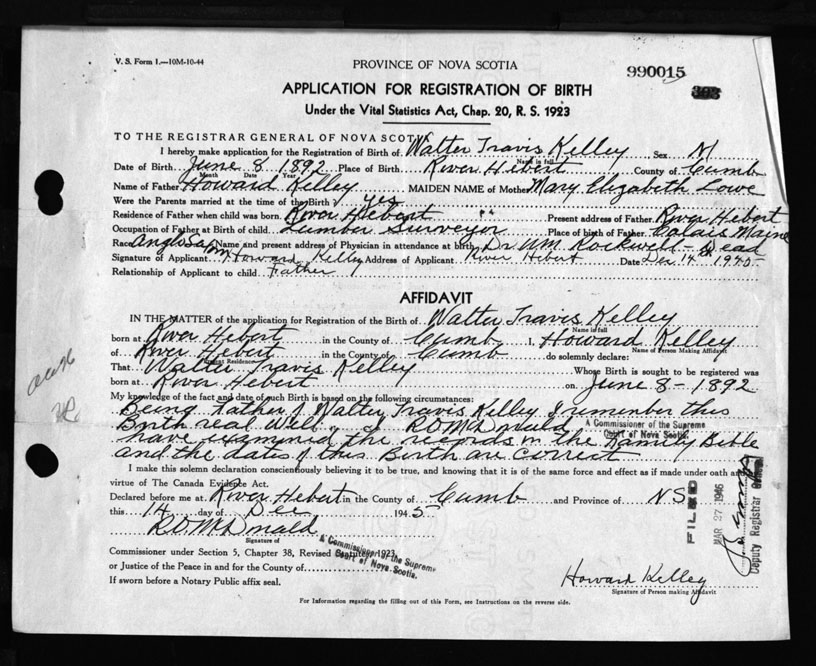 V. S. Form 1.—10M-10-44
PROVINCE OF NOVA SCOTIA
990015
APPLICATION FOR REGISTRATION OF BIRTH
Under the Vital Statistics Act, Chap. 20, R. S. 1923
TO THE REGISTRAR GENERAL OF NOVA SCOTIA
I hereby make application for the Registration of Birth of Walter Travis Kelley Sex M
Name in full
Date of Birth June 8 1892 Place of Birth River Hebert County of Cumb
Month Date Year
Name of Father Howard Kelley MAIDEN NAME of Mother Mary Elizabeth Lowe
Were the Parents married at the time of the Birth? yes
Residence of Father when child was born River Hebert Present address of Father River Hebert
Occupation of Father at Birth of child Lumber Surveyor Place of birth of Father Calais Maine
Race Anglo Saxon Name and present address of Physician in attendance at birth Dr. Rockwell - Dead
Signature of Applicant Howard Kelley Address of Applicant River Hebert Date Dec 14th 1945
Relationship of Applicant to child Father
AFFIDAVIT
IN THE MATTER of the application for Registration of the Birth of Walter Travis Kelley
Name in full
born at River Hebert in the County of Cumb I, Howard Kelley
Name of Person Making Affidavit
of River Hebert in the County of Cumb do solemnly declare:
Present Residence
That Walter Travis Kelley Whose Birth is sought to be registered was
born at River Hebert on June 8 - 1892
My knowledge of the fact and date of such Birth is based on the following circumstances:
Being Father of Walter Travis Kelley I remember this
Birth real well. I R D McDonald
A Commissioner of the Supreme
Court of Nova Scotia.
have examined the records in the Family Bible
and the dates of this Birth are correct
I make this solemn declaration conscientiously believing it to be true, and knowing that it is of the same force and effect as if made under oath and
virtue of The Canada Evidence Act.
Declared before me at River Hebert in the County of Cumb and Province of NS
this 14 day of Dec 1945
R D McDonald
Signature of
A Commissioner of the Supreme
Court of Nova Scotia.
Commissioner under Section 5, Chapter 38, Revised Statutes, 1923,
or Justice of the Peace in and for the County of
If sworn before a Notary Public affix seal.
Howard Kelley
Signature of Person making Affidavit
For Information regarding the filling out of this Form, see Instructions on the reverse side.
FILED
MAR 27 1946
Deputy Registrar